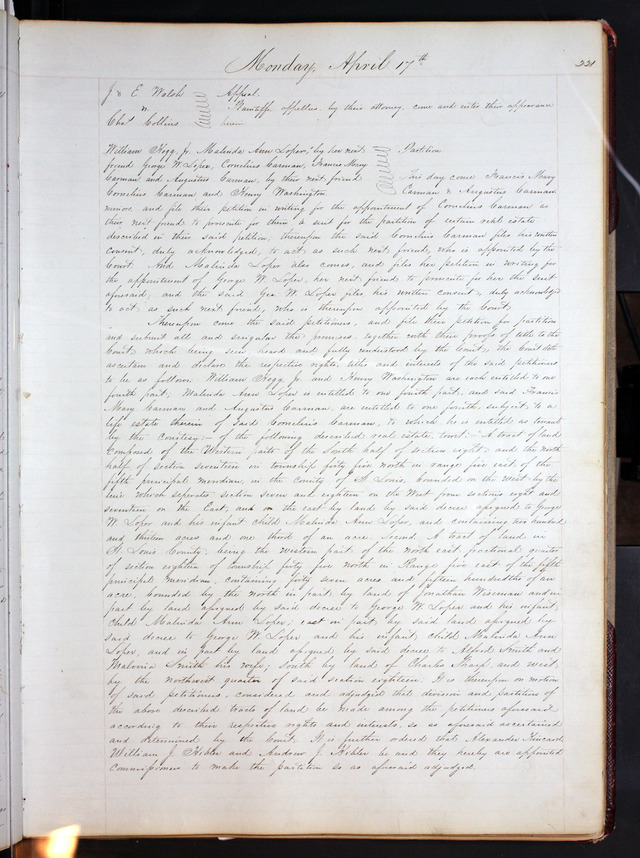 Monday, April 17th
221
J & E Walsh
vs
Chas Collins
Appeal.
Plaintiffs appellees, by their attorney, come and enter their appearance
herein
William Fogg, Jr. Malinda Ann Loper, by her next
friend George W Loper, Cornelius Carman, Francis Mary
Carman and Augustus Carman, by their next friend
Cornelius Carman and Henry Washington
Partition
This day come Francis Mary
Carman & Augustus Carman
minors, and file their petition in writing for the appointment of Cornelius Carman as
their next friend to prosecute for them a suit for the partition of certain real estate
described in their said petition; thereupon the said Cornelius Carman files his written
consent, duly acknowledged, to act as such next friend, who is appointed by the
Court. And Malinda Loper also comes, and files her petition in writing for
the appointment of George W. Loper, her next friend to prosecute for her the suit
aforesaid, and the said Geo W. Loper files his written consent, duly acknowledged
to act as such next friend, who is thereupon appointed by the Court.
Thereupon come the said petitioners, and file their petition for partition
and submit all and singular the premises together with their proofs of title to the
Court, which being seen, heard and fully understood by the Court, the Court doth
ascertain and declare the respective rights, titles and interests of the said petitioners
to be as follows: William Fogg Jr. and Henry Washington are each entitled to one
fourth part; Malinda Ann Loper is entitled to one fourth part, and said Francis
Mary Carman and Augustus Carman, are entitled to one fourth, subject to a
life estate therein of said Cornelius Carman, to which he is entitled as tenant
by the courtesy,- of the following described real estate, towit:- A tract of land
composed of the Western parts of the South half of section eight, and the north
half of section seventeen in township forty five north in range five east of the
fifth principal meridian, in the County of St Louis, bounded on the West by the
line which seperates section seven and eighteen on the West from sections eight and
seventeen on the East, and on the east by land by said decree assigned to George
W Loper and his infant child Malinda Ann Loper, and containing two hundred
and thirteen acres and one third of an acre. Second, A tract of land in
St. Louis County; being the western part of the north east fractional quarter
of section eighteen of township forty five north in Range five east of the fifth
principal meridian, containing forty seven acres and fifteen hundredths of an
acre, bounded by the north in part by land of Jonathan Wiseman and in
part by land assigned by said decree to George W Loper and his infant
child Malinda Ann Loper; east in part, by said land assigned by
said decree to George W Loper and his infant child Malinda Ann
Loper, and in part by land assigned by said decree to Alfred Smith and
Malvinia Smith his wife; South by land of Charles and west
by the northwest quarter of said section eighteen. It is thereupon on motion
of said petitioners, considered and adjudged that division and partition of
the above described tracts of land be made among the petitioners aforesaid
according to their respective rights and interests, so as aforesaid ascertained
and determined by the Court. It is further ordered that Alexander Kincaid,
William J. Hibler and Andrew J. Hibler be and they hereby are appointed
Commissioners to make the partition so as aforesaid adjudged.